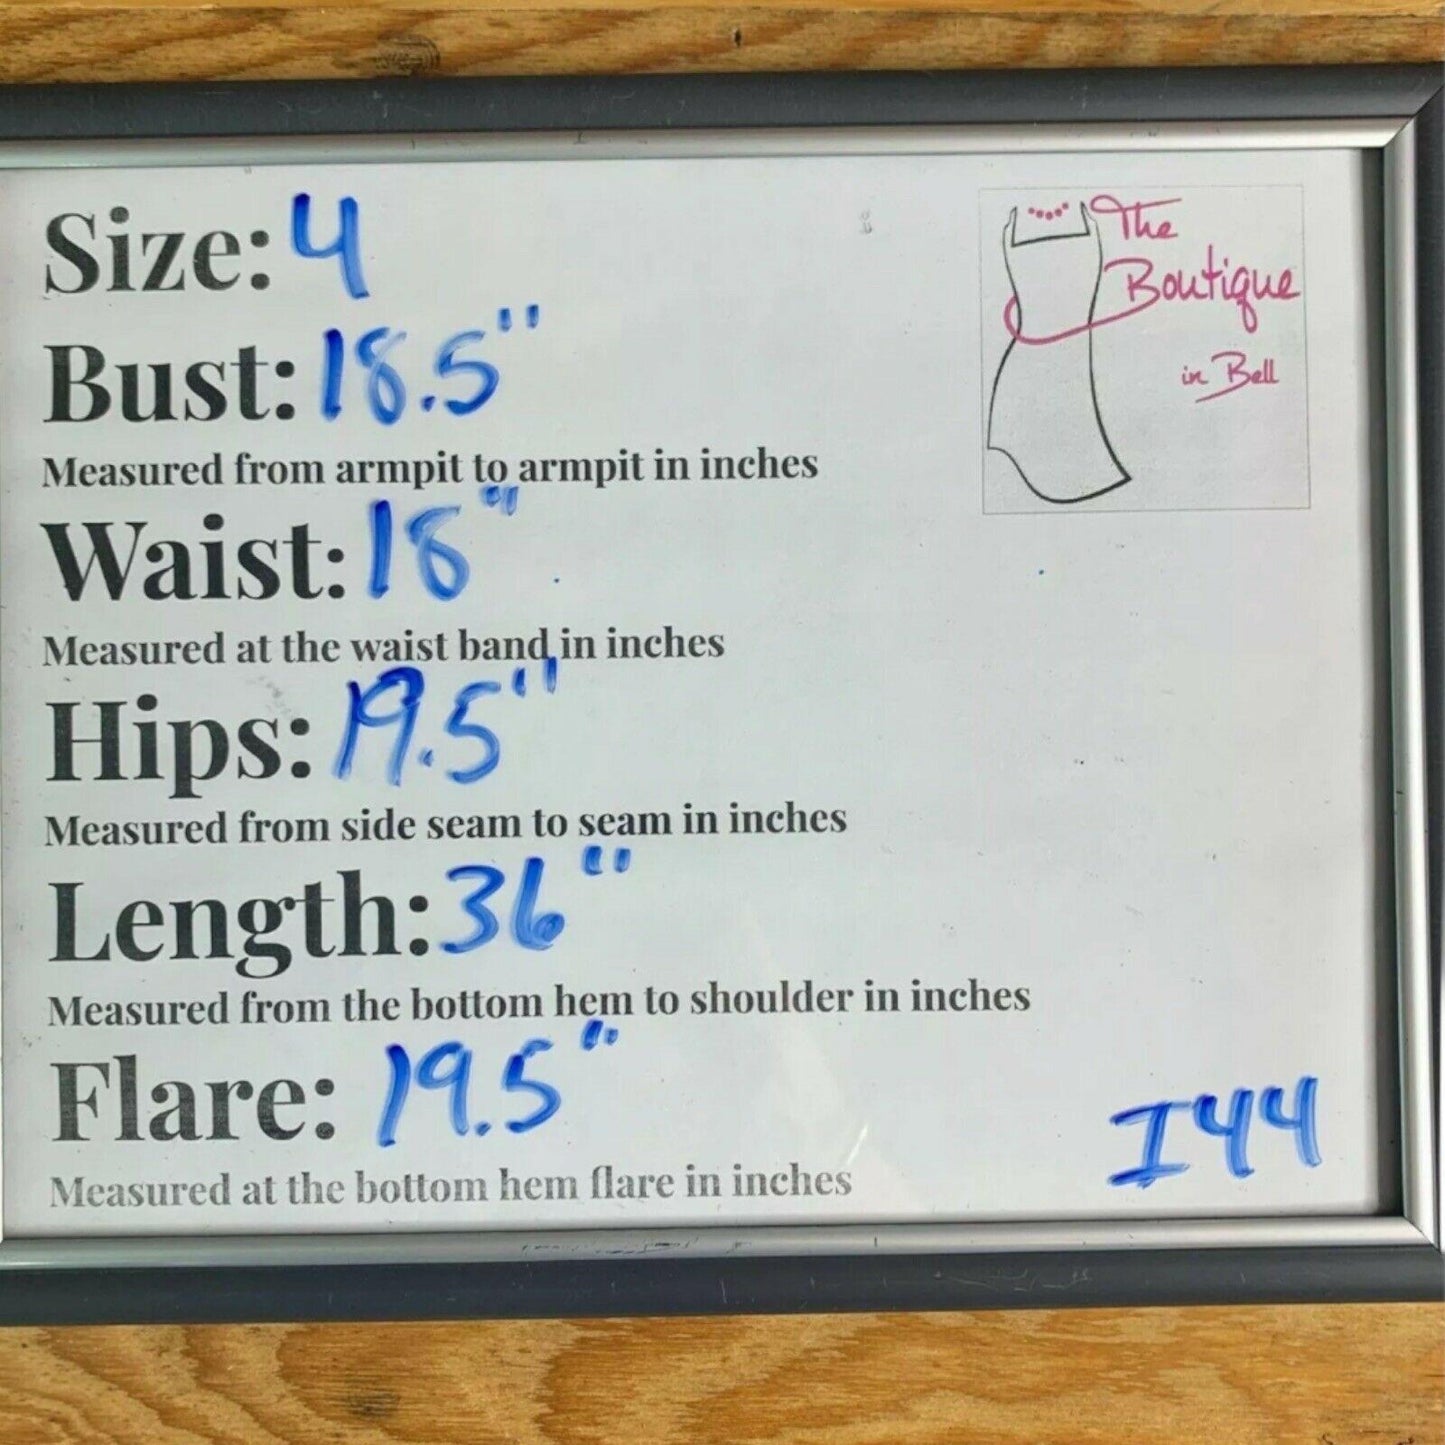 Size: 4
Bust: 18.5"
Measured from armpit to armpit in inches
Waist: 18"
Measured at the waist band in inches
Hips: 19.5"
Measured from side seam to seam in inches
Length: 36"
Measured from the bottom hem to shoulder in inches
Flare: 19.5"
Measured at the bottom hem flare in inches
The
Boutique
in Bell
I44